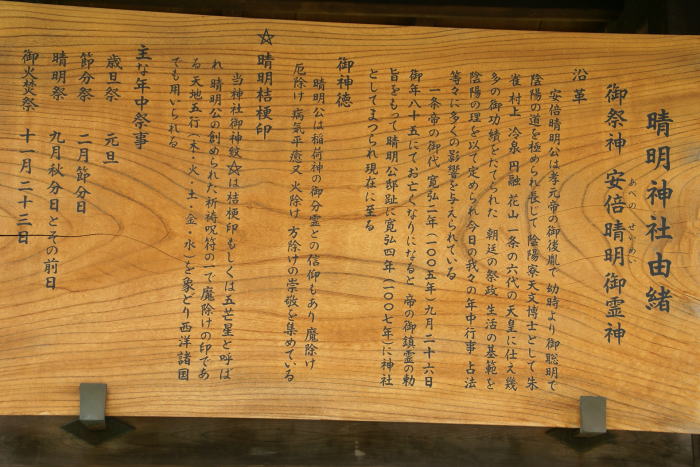 晴明神社由緒
御祭神 安倍晴明御霊神
あべの せいめい
沿革
安倍晴明公は孝元帝の御後胤で 幼時より御聡明で
陰陽の道を極められ長じて陰陽寮天文博士として 朱
雀 村上 冷泉 円融 花山 一条の六代の天皇に仕え幾
多の御功績をたてられた 朝廷の祭政 生活の基範を
陰陽の理を以て定められ今日の我々の年中行事 占法
等々に多くの影響を与えられている
一条帝の御代 寛弘二年(一〇〇五年)九月二十六日
御年八十五にてお亡くなりになると 帝の御鎮霊の勅
旨をもって晴明公邸趾に寛弘四年(一〇〇七年)に神社
としてまつられ現在に至る
御神徳
晴明公は稲荷神の御分霊との信仰もあり 魔除け
厄除け 病気平癒又火除け 方除けの崇敬を集めている
☆ 晴明桔梗印
当神社御神紋☆は桔梗印もしくは五芒星と呼ば
れ 晴明公の創められた祈祷呪符の一で魔除けの印であ
る 天地五行(木・火・土・金・水)を象どり西洋諸国
でも用いられる
主な年中祭事
歳旦祭 元旦
節分祭 二月節分日
晴明祭 九月秋分日とその前日
御火焚祭 十一月二十三日